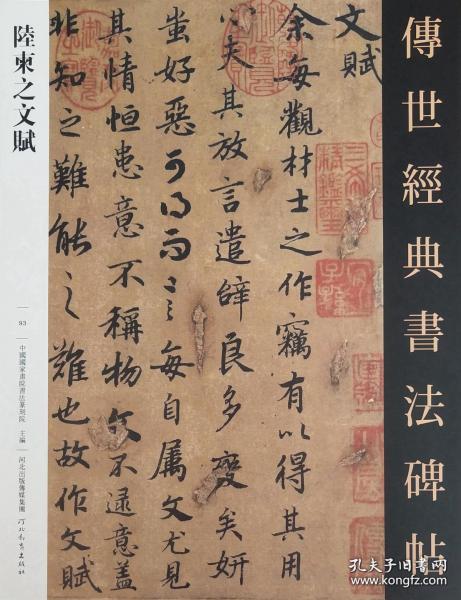 傳世經典書法碑帖
文賦
余每觀材士之作竊有以得其用
心夫其放言遣辭良多變矣妍
蚩好惡可得而言每自屬文尤見
其情恒患意不稱物文不逮意蓋
非知之難能之難也故作文賦
陸柬之文賦
93
中國國家畫院書法篆刻院 主編
河北出版傳媒集團
河北教育出版社
孔夫子旧书网
www.kongfz.com